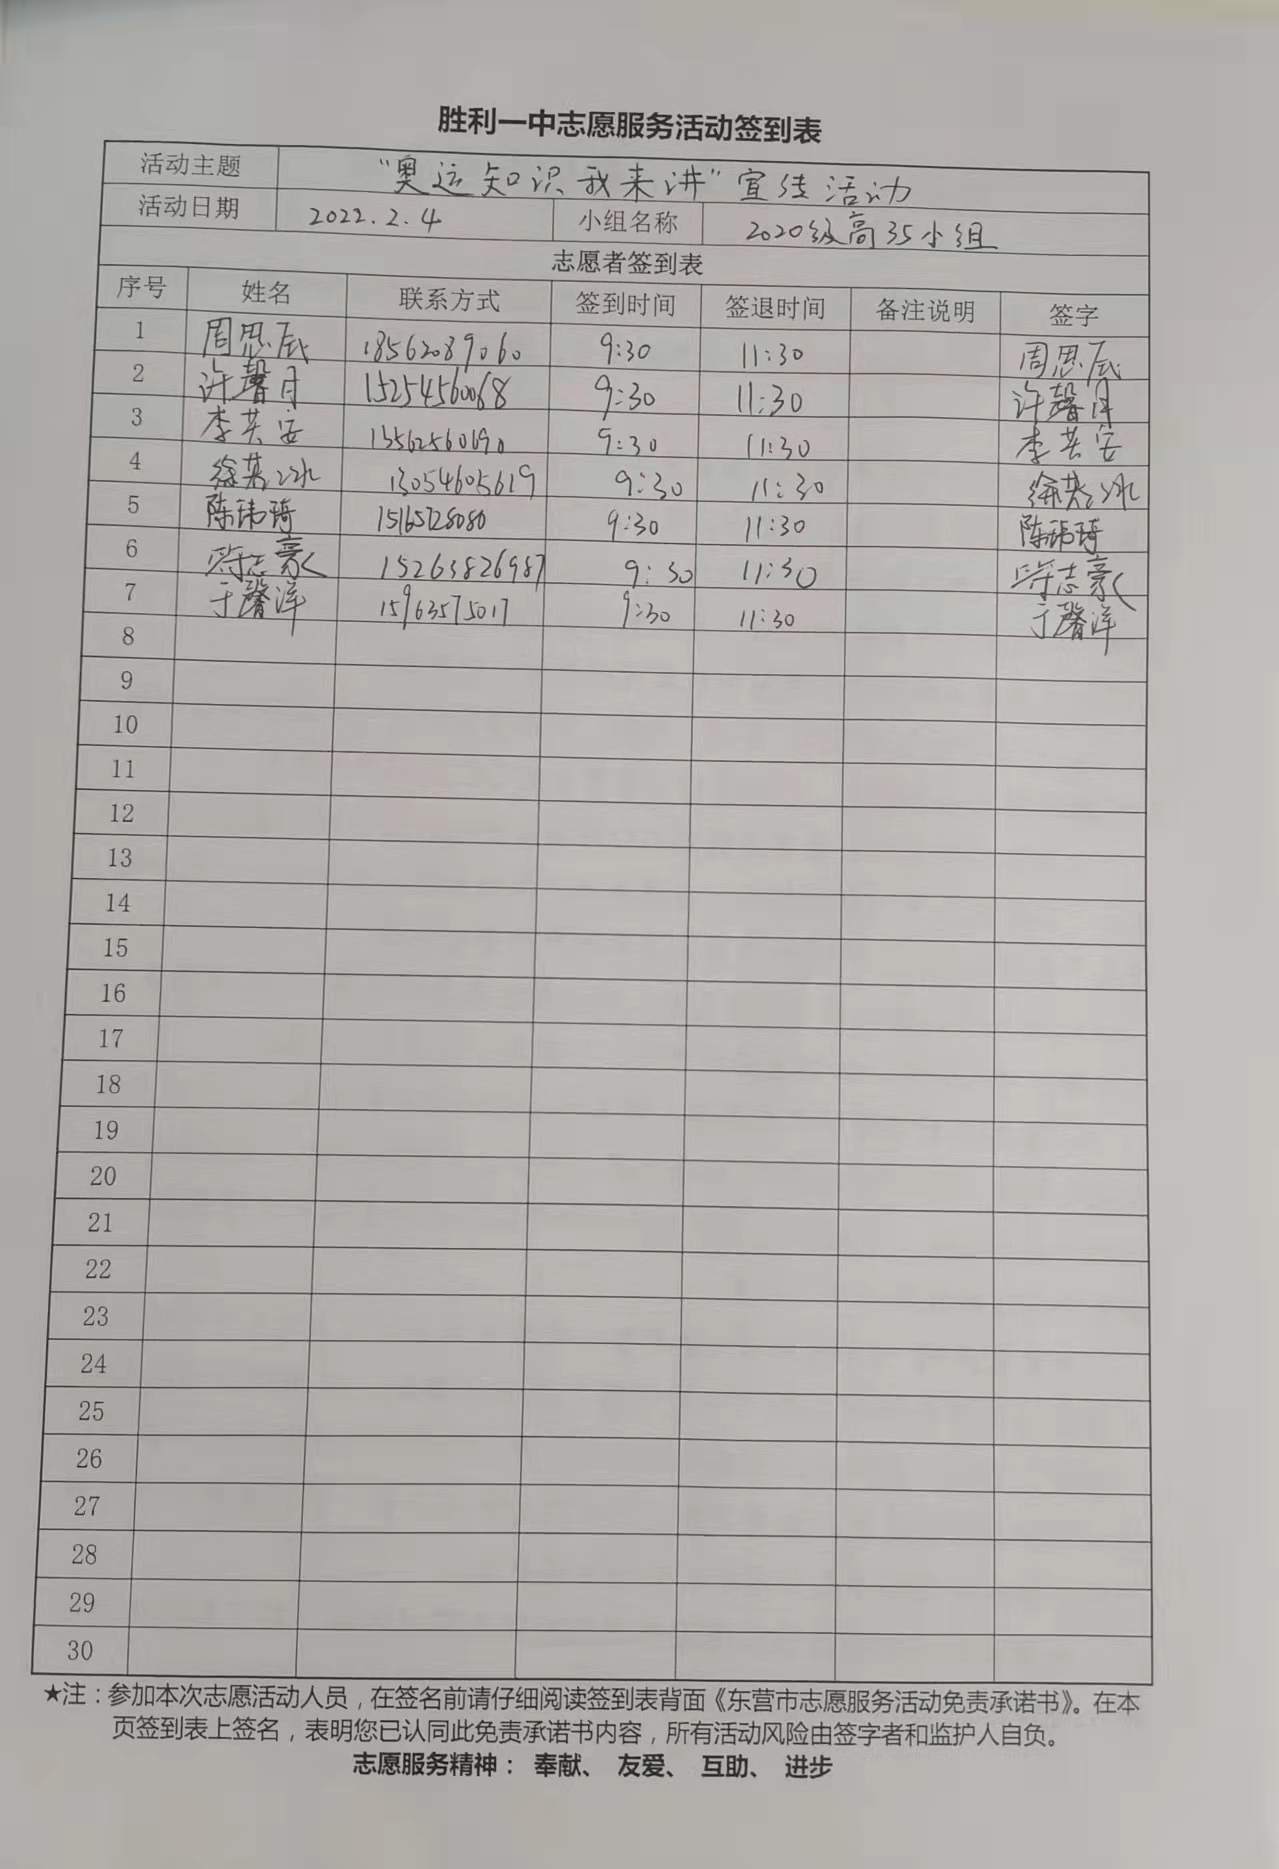 胜利一中志愿服务活动签到表
活动主题 “奥运知识我来讲”宣传活动
活动日期 2022.2.4 小组名称 2020级高35小组
志愿者签到表
序号 姓名 联系方式 签到时间 签退时间 备注说明 签字
1 周思辰 18562089060 9:30 11:30 周思辰
2 许馨月 15254560068 9:30 11:30 许馨月
3 李芸安 13562560690 9:30 11:30 李芸安
4 徐若冰 13054605619 9:30 11:30 徐若冰
5 陈玮琦 15165728080 9:30 11:30 陈玮琦
6 志豪 15263826987 9:30 11:30 志豪
7 于馨洋 15963575017 9:30 11:30 于馨洋
8
9
10
11
12
13
14
15
16
17
18
19
20
21
22
23
24
25
26
27
28
29
30
★注：参加本次志愿活动人员，在签名前请仔细阅读签到表背面《东营市志愿服务活动免责承诺书》。在本
页签到表上签名，表明您已认同此免责承诺书内容，所有活动风险由签字者和监护人自负。
志愿服务精神： 奉献、 友爱、 互助、 进步